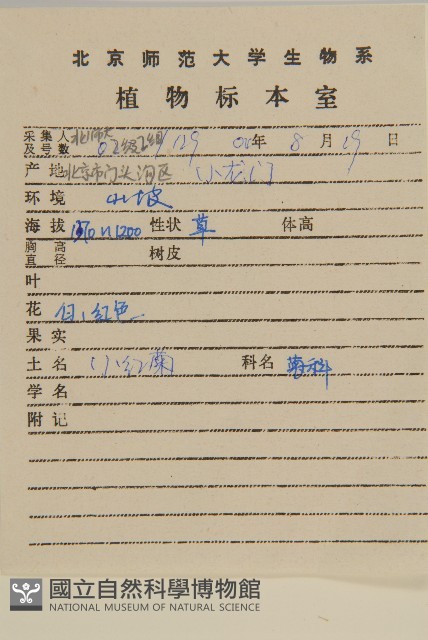 北京师范大学生物系
植物标本室
采集人及号数 北师大02级2组/129 04年8月19日
产地 北京市门头沟区 小龙门
环境 山坡
海拔 1200 性状 草 体高
胸高直径 树皮
叶
花 白、红色
果实
土名 科名
学名
附记
國立自然科學博物館
NATIONAL MUSEUM OF NATURAL SCIENCE